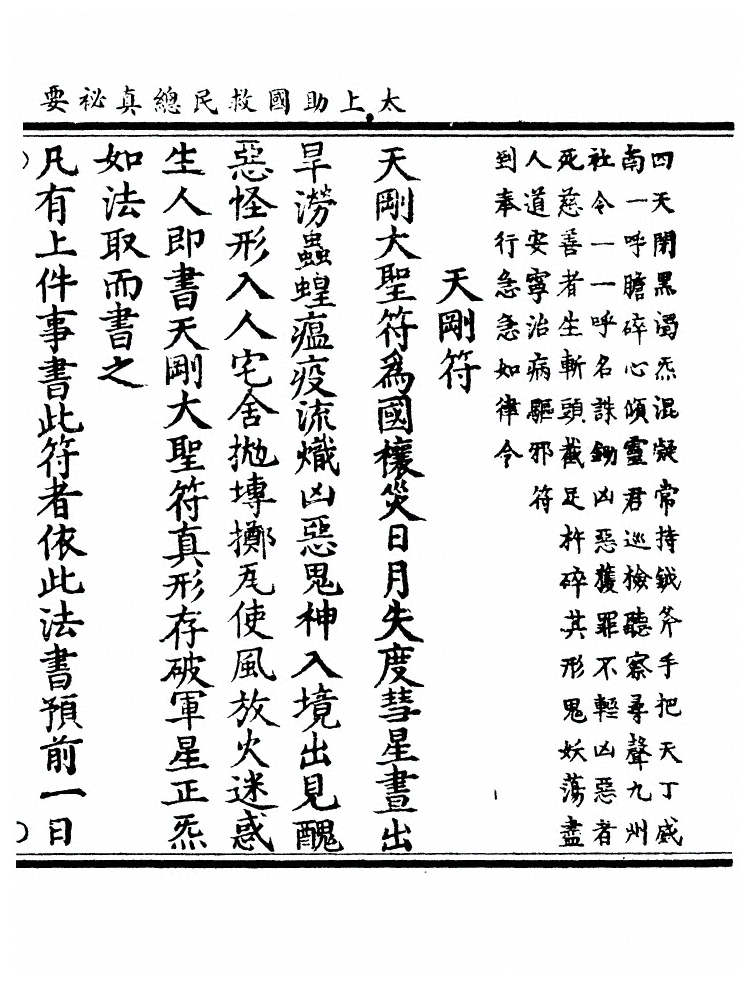 太上助國救民總真祕要
四天閉黑濁炁混凝常持鉞斧手把天丁威
南一呼膽碎心傾靈君巡檢聽察尋聲九州
社令一一呼名誅鋤凶惡獲罪不輕凶惡者
死慈善者生斬頭截足杵碎其形鬼妖蕩盡
人道安寧治病驅邪符
到奉行急急如律令
天剛符
天剛大聖符爲國禳災日月失度彗星晝出
旱澇蟲蝗瘟疫流熾凶惡鬼神入境出見醜
惡怪形入人宅舍拋塼擲瓦使風放火迷惑
生人即書天剛大聖符真形存破軍星正炁
如法取而書之
凡有上件事書此符者依此法書預前一日